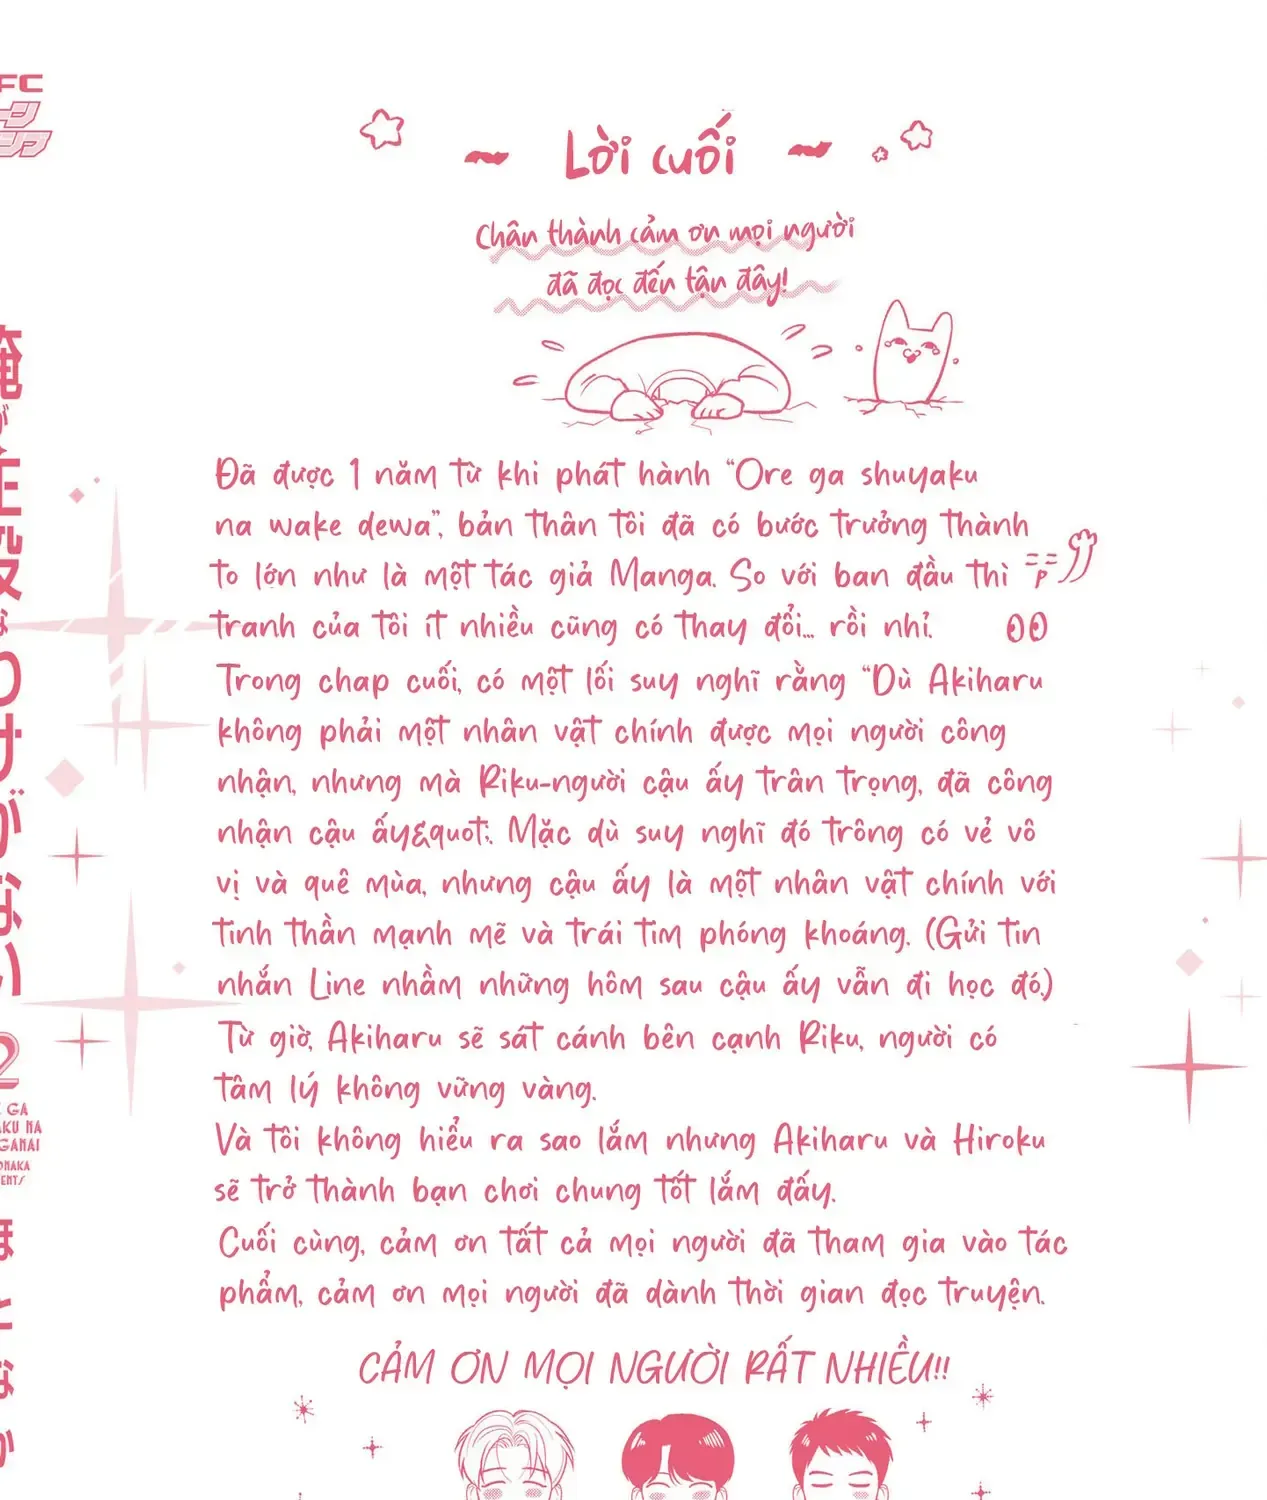 Lời cuối
Chân thành cảm ơn mọi người
đã đọc đến tận đây!
Đã được 1 năm từ khi phát hành "Ore ga shuyaku
na wake dewa", bản thân tôi đã có bước trưởng thành
to lớn như là một tác giả Manga. So với ban đầu thì
tranh của tôi ít nhiều cũng có thay đổi... rồi nhỉ.
Trong chap cuối, có một lối suy nghĩ rằng "Dù Akiharu
không phải một nhân vật chính được mọi người công
nhận, nhưng mà Riku-người cậu ấy trân trọng, đã công
nhận cậu ấy&quot;. Mặc dù suy nghĩ đó trông có vẻ vô
vị và quê mùa, nhưng cậu ấy là một nhân vật chính với
tinh thần mạnh mẽ và trái tim phóng khoáng. (Gửi tin
nhắn Line nhầm những hôm sau cậu ấy vẫn đi học đó.)
Từ giờ, Akiharu sẽ sát cánh bên cạnh Riku, người có
tâm lý không vững vàng.
Và tôi không hiểu ra sao lắm nhưng Akiharu và Hiroku
sẽ trở thành bạn chơi chung tốt lắm đấy.
Cuối cùng, cảm ơn tất cả mọi người đã tham gia vào tác
phẩm, cảm ơn mọi người đã dành thời gian đọc truyện.
CẢM ƠN MỌI NGƯỜI RẤT NHIỀU!!
FC
俺が主役なわけがない
2
GA
AKU NA
GANAI
ONAKA
ENTS
ほとなか